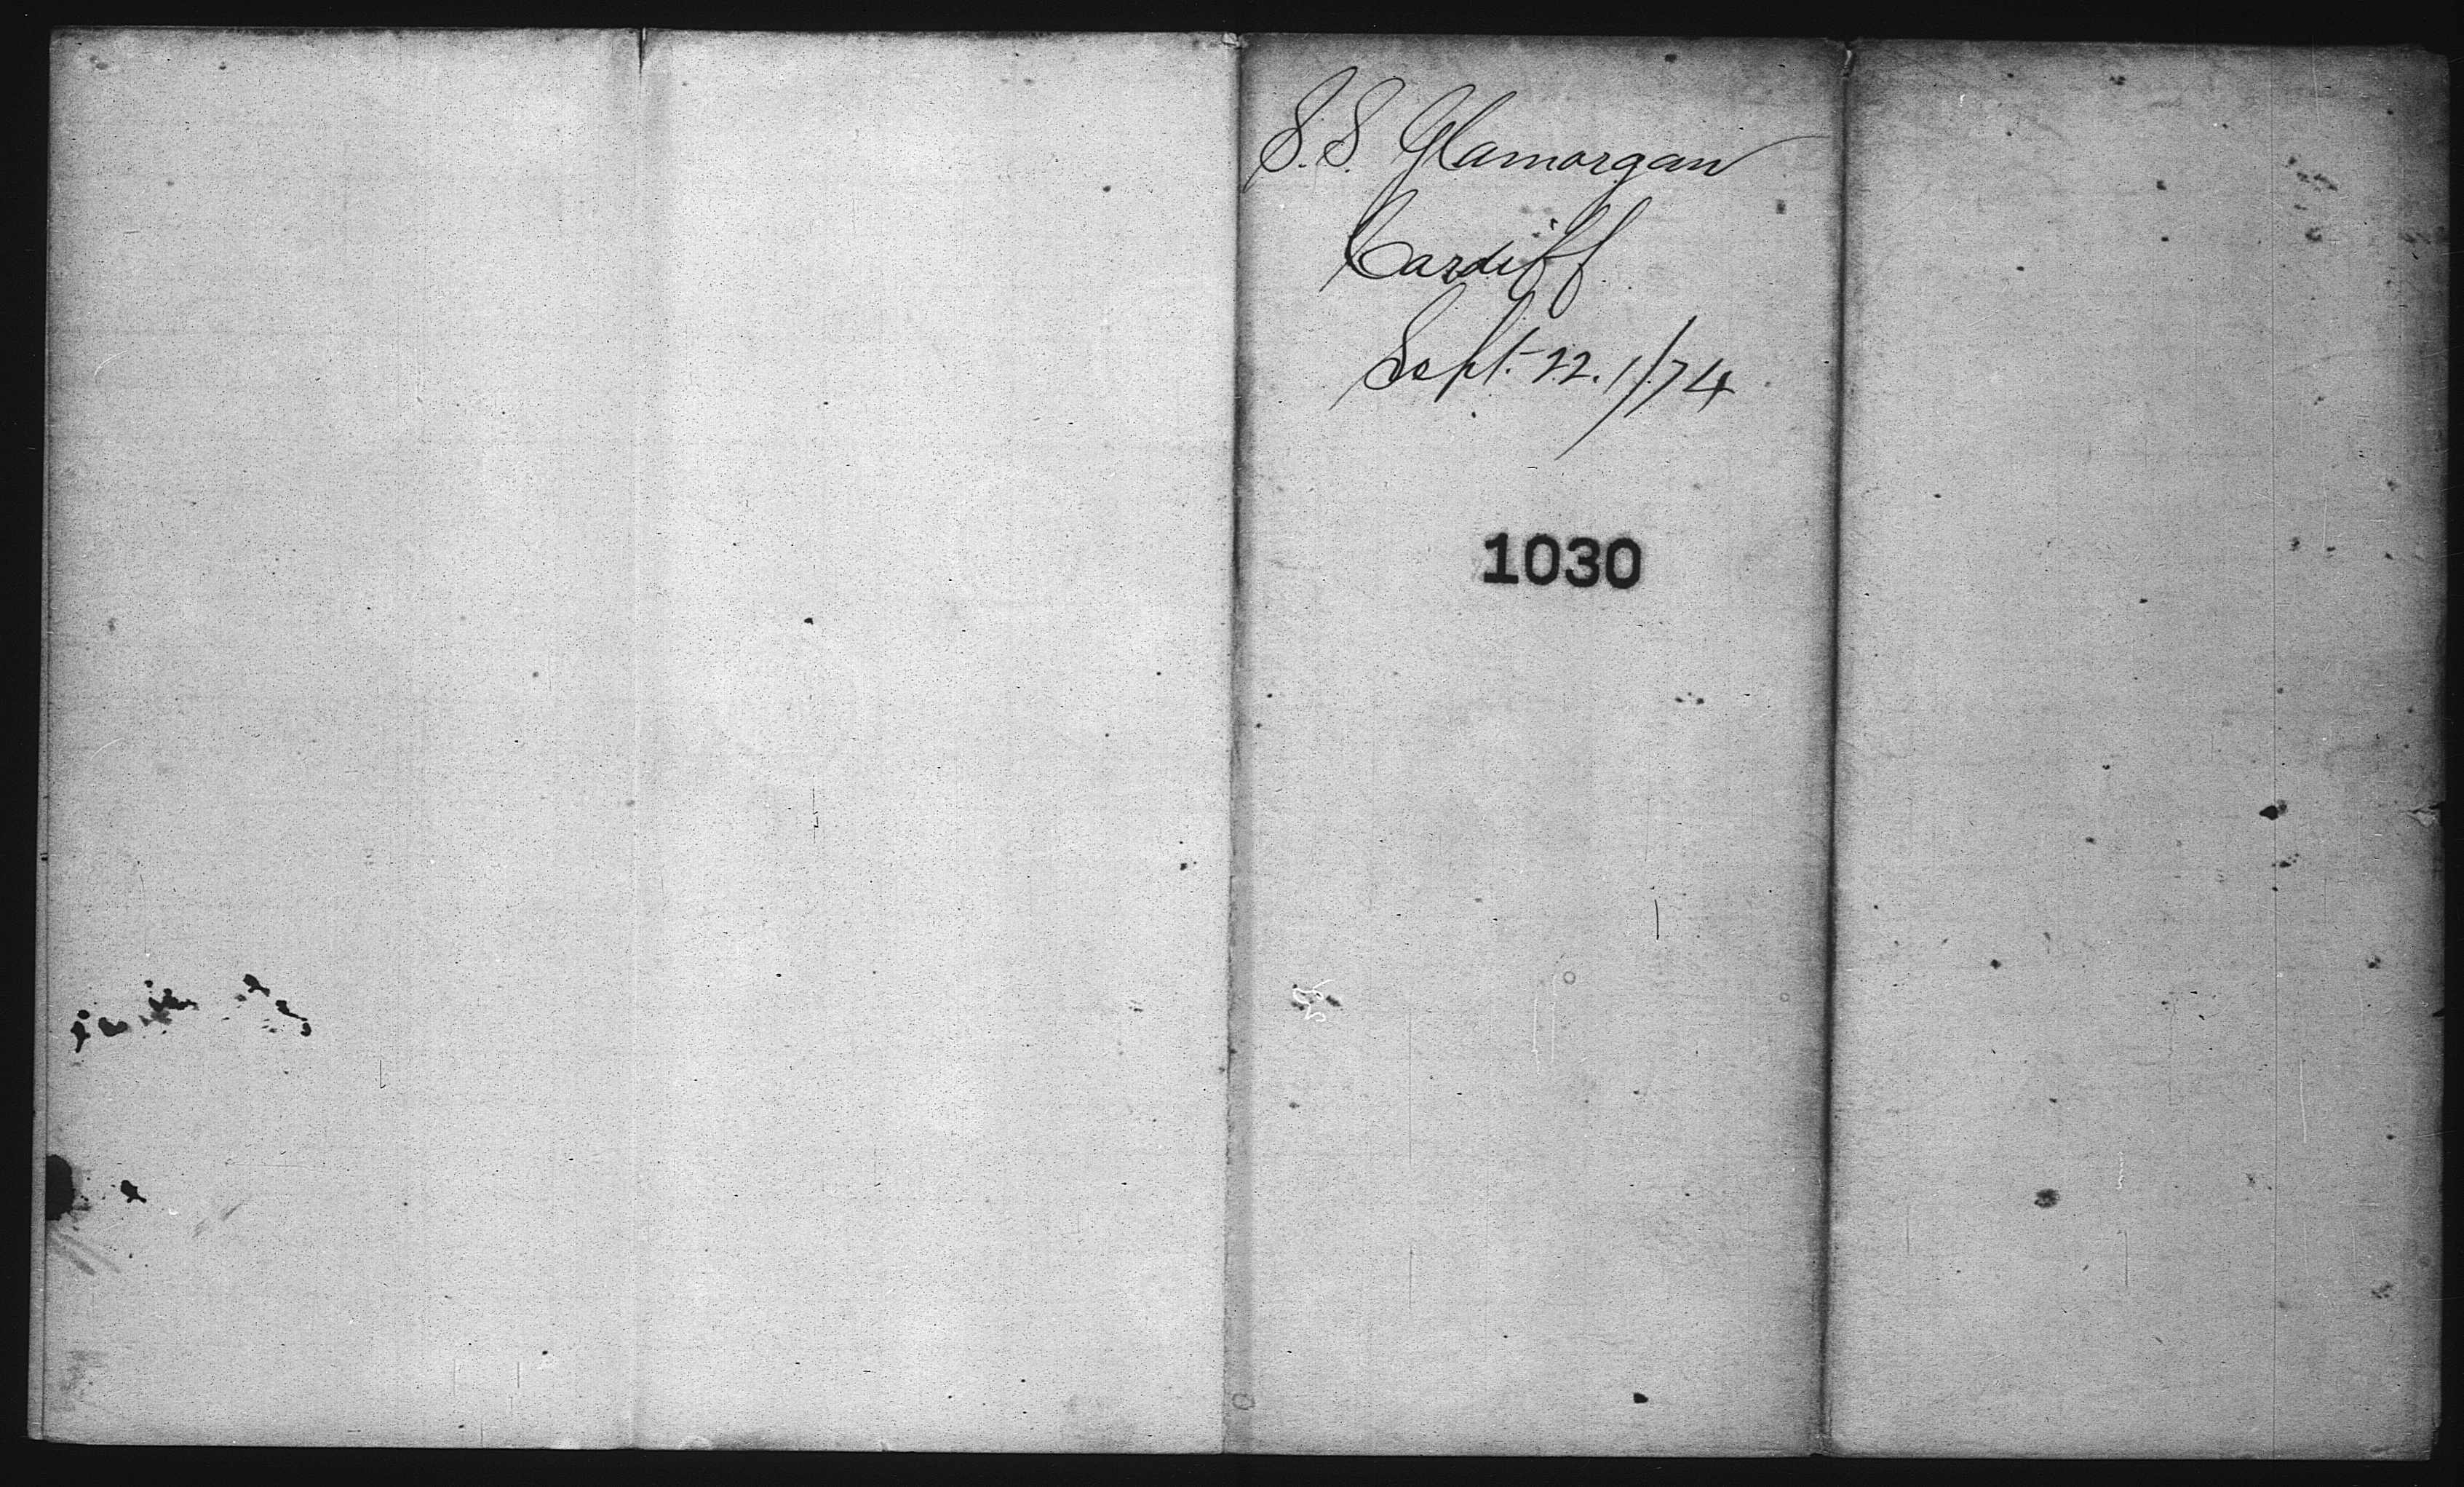 S.S. Glamorgan
Cardiff
Sept. 22. 1/74
1030